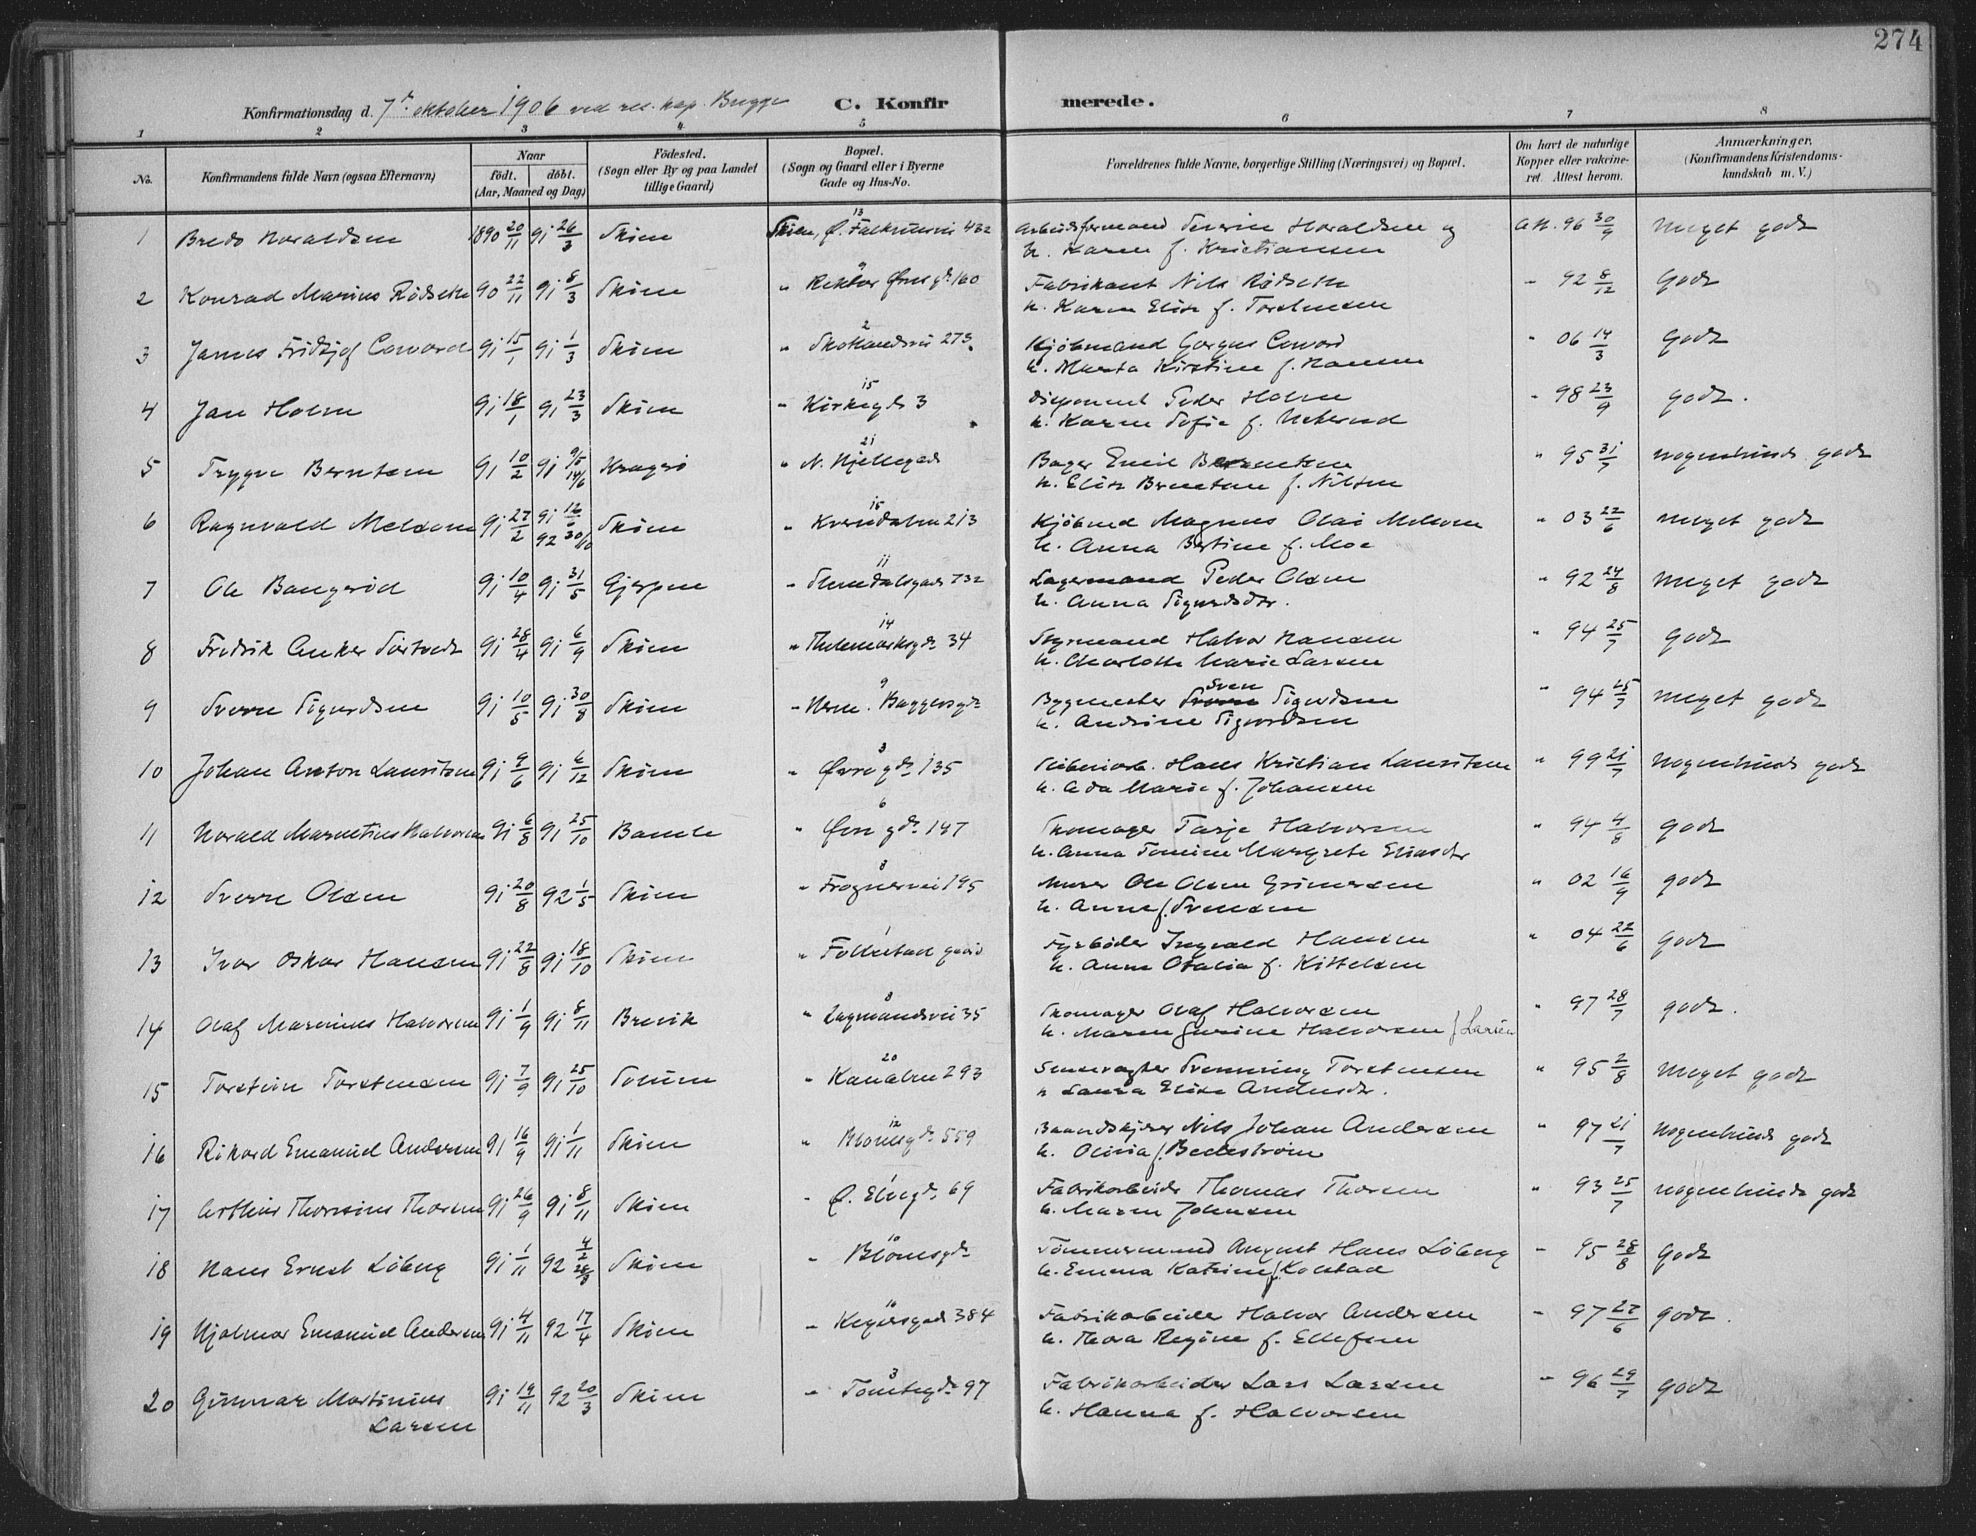 274
Konfirmationsdag d. 7de oktober 1906 ved res. kap. Bugge C. Konfirmerede.
1 2 3 4 5 6 7 8
No. Konfirmandens fulde Navn (ogsaa Efternavn) Naar födt. döbt. (Aar, Maaned og Dag) Födested. (Sogn eller By og paa Landet tillige Gaard) Bopæl. (Sogn og Gaard eller i Byerne Gade og Hus-No. Forældrenes fulde Navne, borgerlige Stilling (Næringsvei) og Bopæl. Om havt de naturlige Kopper eller vakcineret. Attest herom. Anmærkninger. (Konfirmandens Kristendomskundskab m. V.)
1 Bredo Haraldsen 1890 20/11 91 26/3 Skien Skien, Ø. Falkumvei 432 13 Arbeidsformand Severin Haraldsen og
h. Karen f. Kristiansen Att. 96 30/9 Meget godt
2 Konrad Marius Rødseth 90 22/11 91 8/3 Skien " Rektor Ørns gd. 160 9 Fabrikant Nils Rødseth
h. Karen Elise f. Torstensen " 92 8/12 Godt
3 James Fridtjof Coward 91 15/1 91 1/3 Skien " Skotlandsvei 273 2 Kjøbmand Coward
h. Marta Kirstine f. Hansen " 06 14/3 Godt
4 Jan Holm 91 18/1 91 23/3 Skien " Kirkegd. 3 15 Disponent Peder Holm
h. Karen Sofie f. " 98 23/9 godt.
5 Trygve Berntsen 91 10/2 91 9/5 14/6 Kragerø " N. Hjellegad 21 Bager Emil Berntsen
h. Elise Berntsen f. Nilsen " 95 31/7 nogenlunde godt
6 Ragnvald Melsom 91 27/2 91 16/6 92 30/10 Skien " Kverndalen 213 15 Kjøbmd Magnus Olai Melsom
h. Anna Bertine f. Moe " 03 22/6 Meget godt
7 Ole Bangerød 91 10/4 91 31/5 Gjerpen " 732 11 Lagermand Peder Olsen
h. Anna Sigurdsdtr. " 92 24/8 Meget godt
8 Fredrik Anker Sørtvedt 91 28/4 91 6/9 Skien " Thelemarksgd. 34 14 Styrmand Halvor Hansen
h. Charlotte Marie Larsen " 94 25/7 godt
9 Sverre Sigurdsen 91 10/5 91 30/8 Skien " Herm. Baggersgd. 9 Bygmester Sven Sigurdsen
h. Andrine Sigurdsen " 94 25/7 Meget godt
10 Johan Anton Lauritsen 91 9/6 91 6/12 Skien " Øvregd. 135 3 Sliberiarb. Hans Kristian Lauritsen
h. Ada Marie f. Johansen " 99 21/7 Nogenlunde godt
11 Harald Marentius Halvorsen 91 6/8 91 25/10 Bamle " Øvregd. 147 6 Skomager Tarje Halvorsen
h. Anna Tomine Margrete Eliasdtr " 94 4/8 godt
12 Sverre Olsen 91 20/8 92 1/5 Skien " Frognervei 195 8 Murer Ole Olsen
h. Anne f. Svensen " 02 16/9 godt
13 Ivar Oskar Hansen 91 22/8 91 18/10 Skien " Follestad 1 Fyrbøder Ingvald Hansen
h. Anne Otalia f. Kittelsen " 04 22/6 godt
14 Olaf Marinius Halvorsen 91 1/9 91 8/11 Brevik " Lagmandsvei 35 8 Skomager Olaf Halvorsen
h. Maren Gurine Halvorsen f. Larsen " 97 28/7 godt.
15 Torstein Torstensen 91 7/9 91 25/10 Solum " Kanalen 293 20 Slusevagter Svenning Torstensen
h Laura Elise Andersdtr. " 95 2/8 Meget godt
16 Rikard Emanuel Andersen 91 16/9 91 1/11 Skien " Blomsgd. 559 12 Nils Johan Andersen
h. Olivia f. Beckstrøm " 97 21/7 Nogenlunde godt
17 Arthur Thorvinus Thorsen 91 26/9 91 8/11 Skien " Ø. Elvegd. 69 1 Fabrikarbeider Thomas Thorsen
h. Maren Johnsen " 93 25/7 nogenlunde godt
18 Hans Ernst Løberg 91 1/11 92 4/2 28/8 Skien " Blomsgd. 10 Tømmermand August Hans Løberg
h. Emma Katrine f. Kolstad " 95 28/8 Godt
19 Hjalmar Emanuel Andersen 91 4/11 92 17/4 Skien " 384 16 Fabrikarbeider Halvor Andersen
h. Thora Regine f. Ellefsen " 97 27/6 godt.
20 Gunnar Martinius
Larsen 91 19/11 92 20/3 Skien " Tomtegd. 97 3 Fabrikarbeider Lars Larsen
h. Hanna f. Halvorsen " 96 29/7 godt